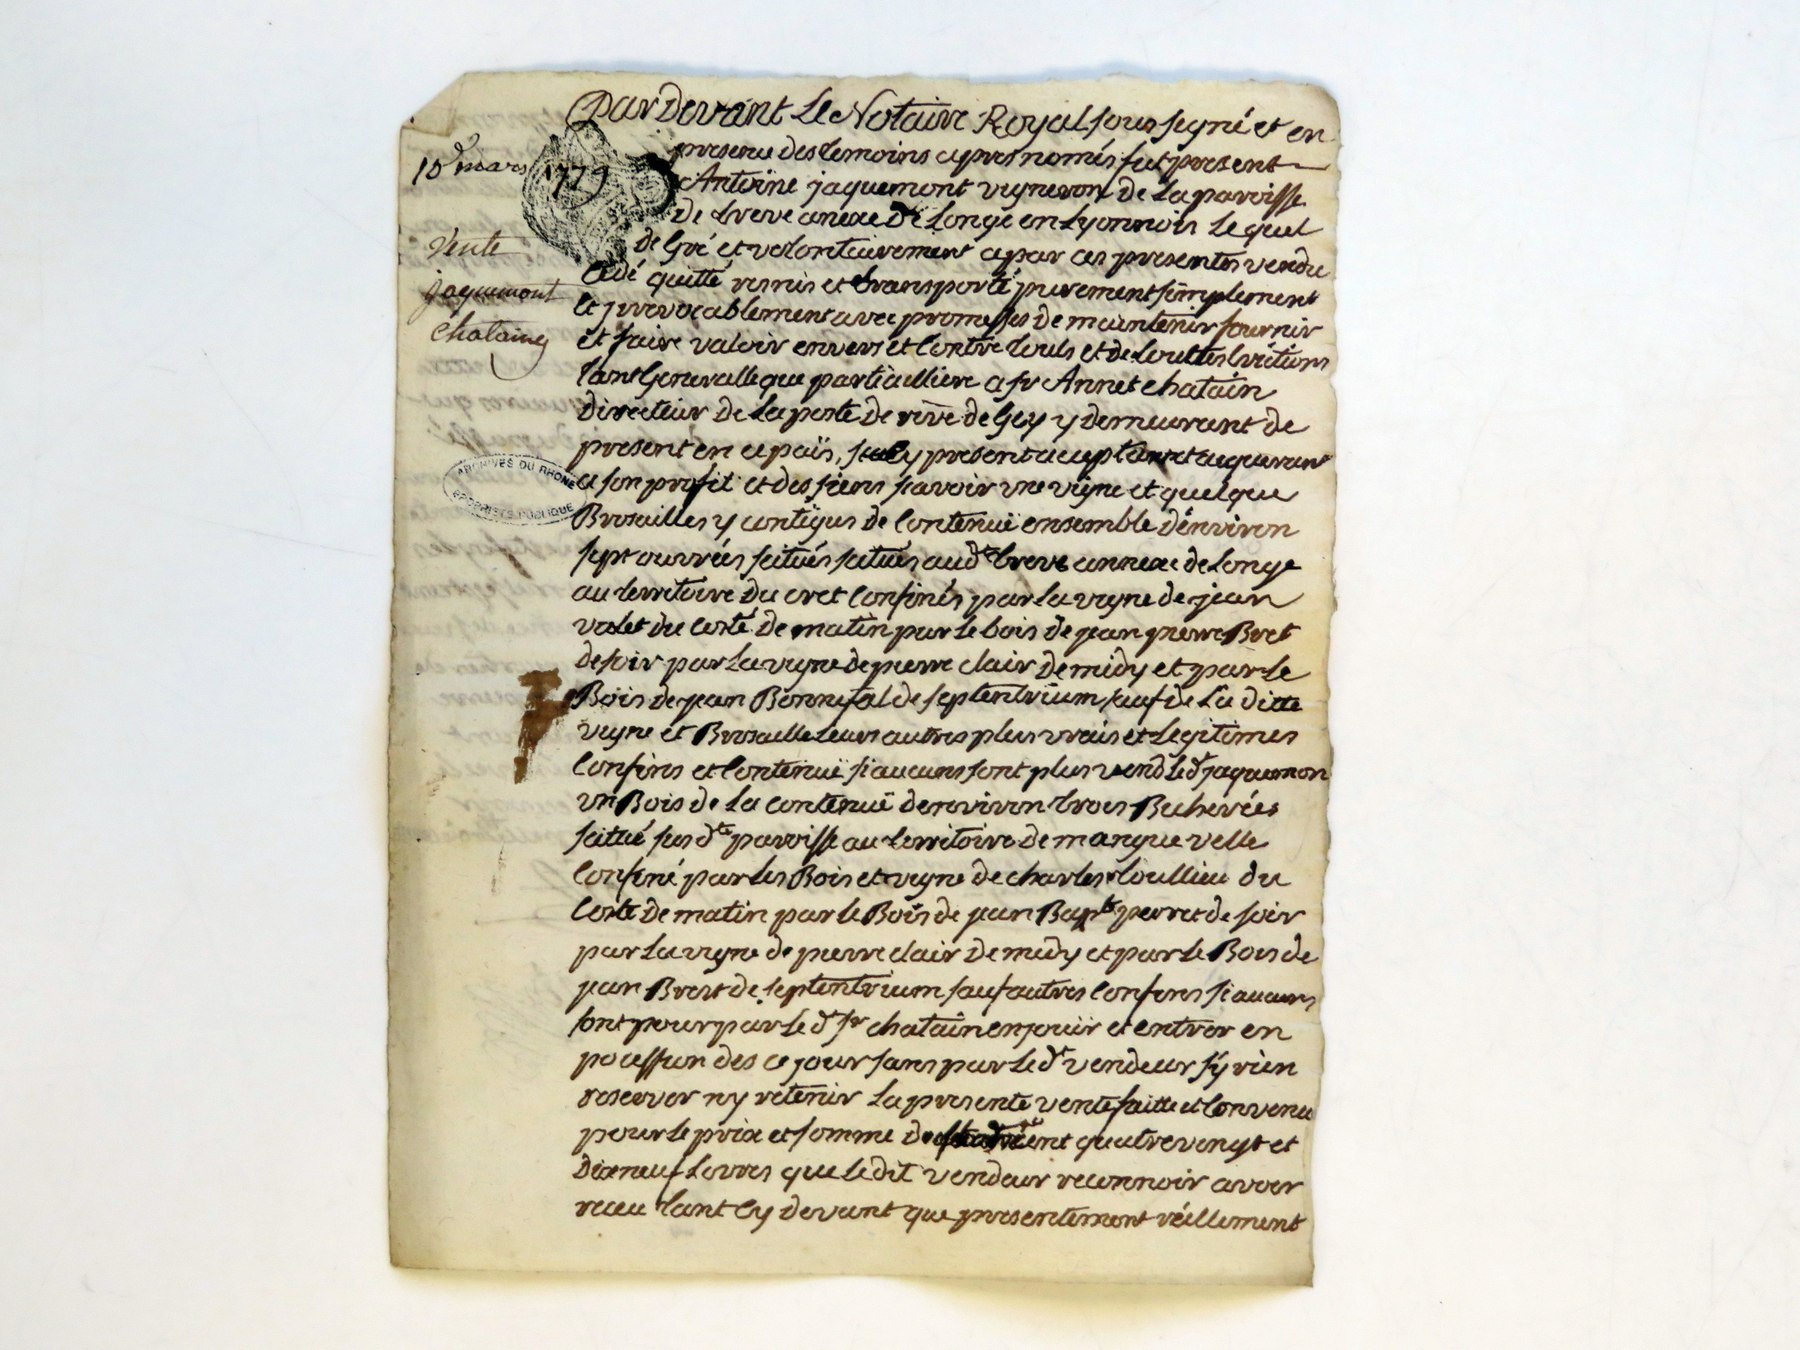 10e mars 1779
Vente
jaquemont
Chatain
ARCHIVES DU RHONE
PROPRIETE PUBLIQUE
Par Devant Le Notaire Royal sous signé et en
presence des temoins apres només fut present
Antoine jaquemont vigneron de La paroisse
de treve anexe de Longe en Lyonnois Le quel
de Gré et volontairement a par ces presentes vendu
Cedé quitté remis et transporté purement simplement
et jrrevocablement avec promesses de maintenir fournir
et faire valoir envers et Contre touts et de touttes Evitions
tant Generalle que particulliere a sr Annet chatain
directeur de La poste de rive de Gey y demeurant de
present en ce païs, jcy present acceptant et aquerant
a son profit et des siens scavoir une vigne et quelque
Brosailles y contigus de Contenuë ensemble d'environ
sept ouvrées scitués scitués aud. treve annexe de Longe
au territoire du cret Confinés par La vigne de jean
valet du Costé de matin par le bois de jean pierre Bret
de soir par La vigne de pierre clair de midy et par Le
Bois de jean Bonnefal de septentrium sauf de La ditte
vigne et Brosaille leurs autres plus vrais et Legitimes
Confins et Contenuë si aucuns sont plus vend Led. jaquemon
un Bois de La contenuë denviron trois Bicherées
scitué sus dte paroisse au territoire de mangue velle
Confiné par Les Bois et vigne de charles Coullieu du
Costé de matin par Le Bois de jean Bapte perret de soir
par La vigne de pierre clair de midy et par Le Bois de
jean Bret de septentrium sauf autres Confins si aucuns
sont pour par Le d. sr chatain en jouïr et entrer en
pocession des ce jour sans par Le d. vendeur s'y rien
reserver ny retenir La presente vente faitte et Convenu
pour le prix et somme de cent quatre vengt et
dix neuf Livres que Ledit vendeur reconnoir avoir
receu tant Cy devant que presentement réellement